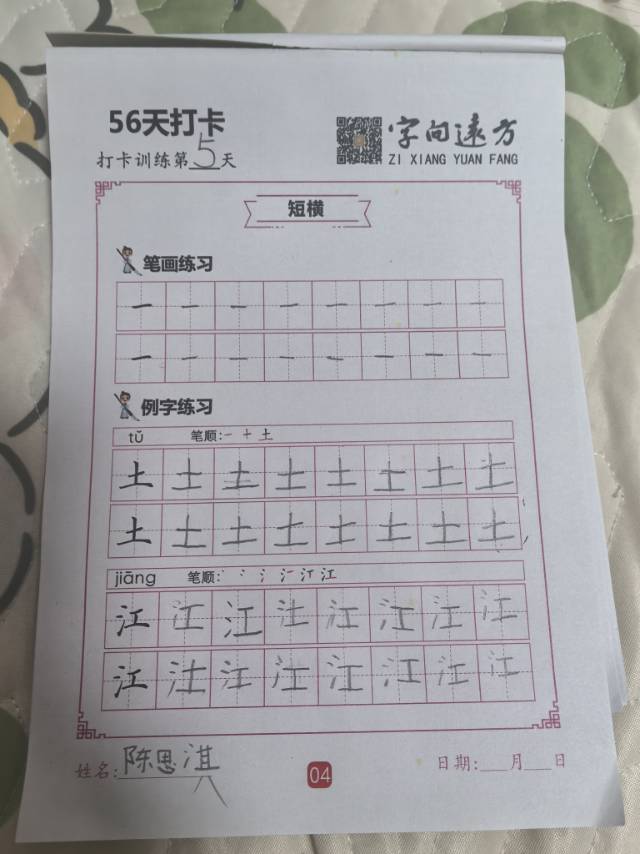 56天打卡
打卡训练第5天
字向远方
ZI XIANG YUAN FANG
短横
笔画练习
一 一 一 一 一 一 一 一
一 一 一 一 一 一 一 一
例字练习
tǔ 笔顺:一 十 土
土 土 土 土 土 土 土 土
土 土 土 土 土 土 土 土
jiāng 笔顺:丶 冫 氵 江
江 江 江 江 江 江 江 江
江 江 江 江 江 江 江 江
姓名:陈思淇
04
日期:___月___日